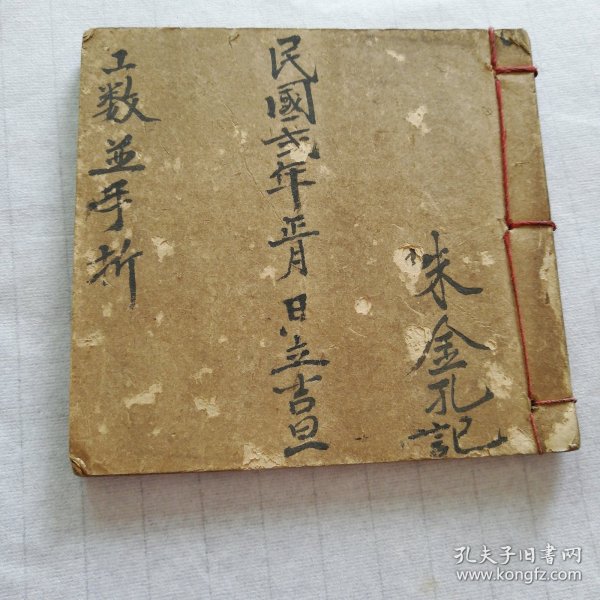 朱金孔記
民國弍年正月日立吉旦
工数並手折
孔夫子旧书网
www.kongfz.com